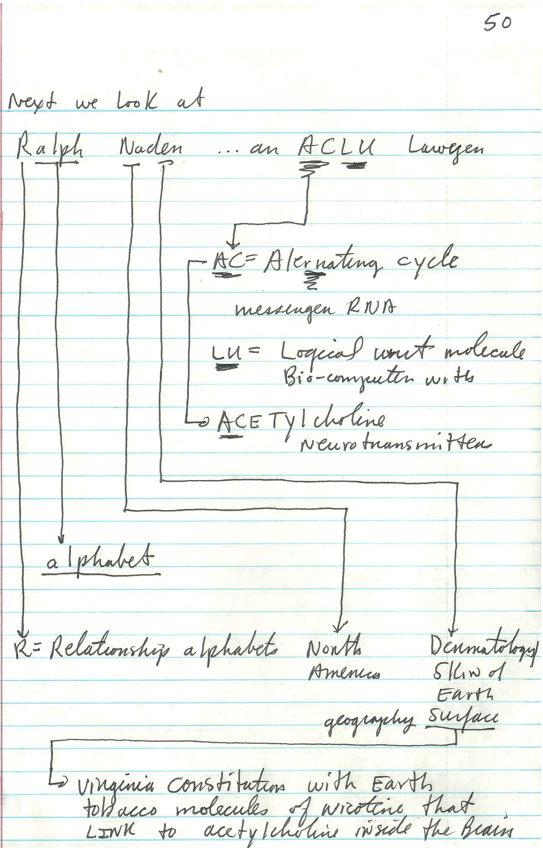 50
Next we look at
Ralph Naden ... an ACLU Lawyer
AC= Alernating cycle
messenger RNA
LU = Logical unit molecule
Bio-computer with
ACETylcholine
Neurotransmitter
alphabet
R= Relationship alphabets North Dermatology
America Skin of
Earth
geography Surface
Virginia Constitution with Earth
tobacco molecules of nicotine that
LINK to acetylcholine inside the Brain